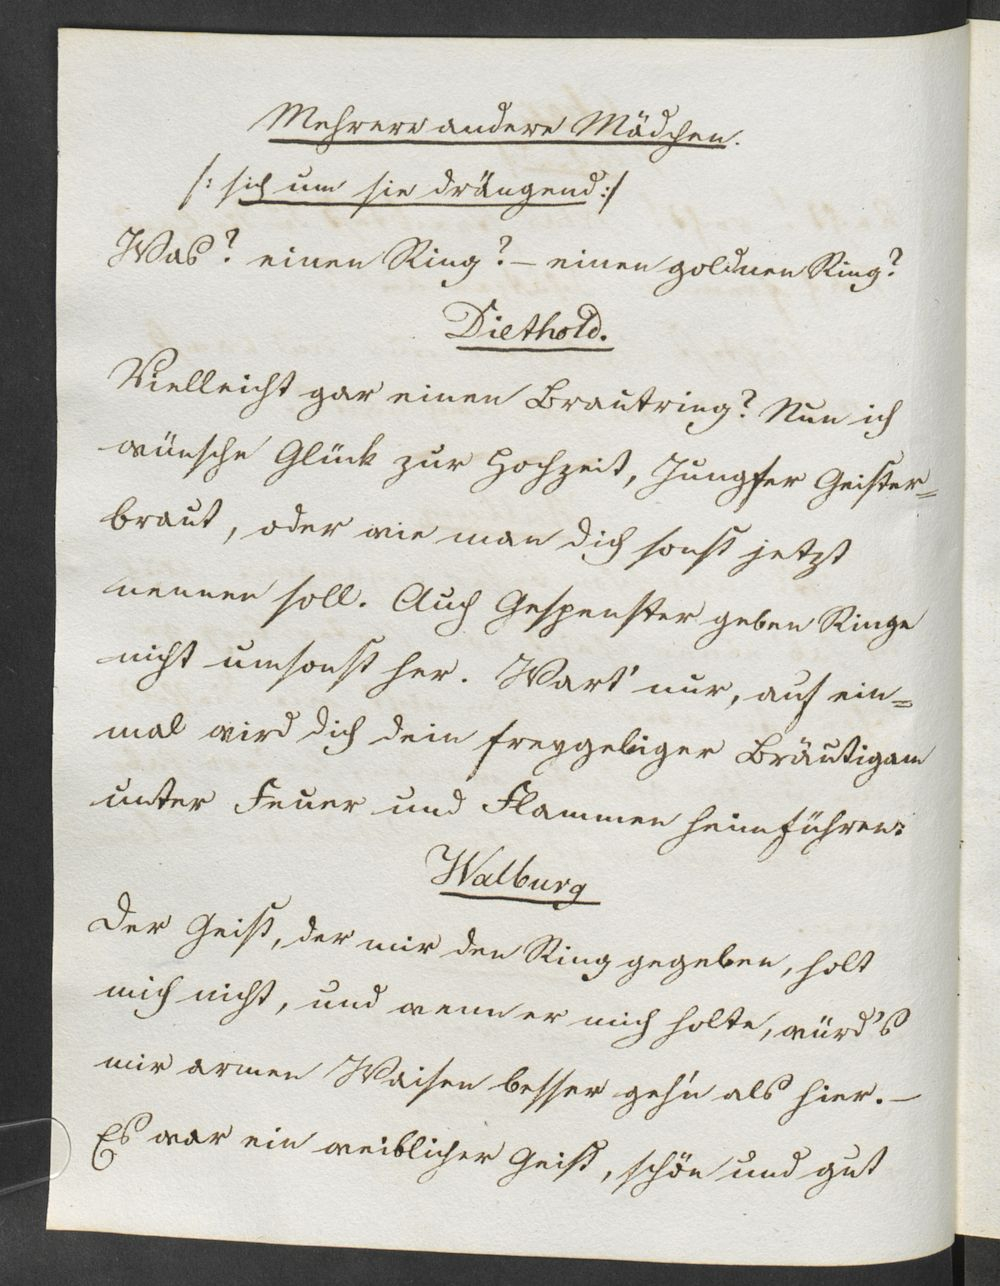 Mehrere andere Mädchen.
/: sich um sie drängend :/
Was? einen Ring? – einen goldnen Ring?
Diethold.
Vielleicht gar einen Brautring? Nun ich
wünsche Glück zur Hochzeit, Jungfer Geister=
braut, oder wie man dich sonst jetzt
nennen soll. Auch Gespenster geben Ringe
nicht umsonst her. Wart' nur, auf ein=
mal wird dich dein freygebiger Bräutigam
unter Feuer und Flammen heimführen.
Walburg
Der Geist, der mir den Ring gegeben, holt
mich nicht, und wenn er mich holte, würd's
mir armen Waisen besser geh'n als hier. –
Es war ein weiblicher Geist, schön und gut